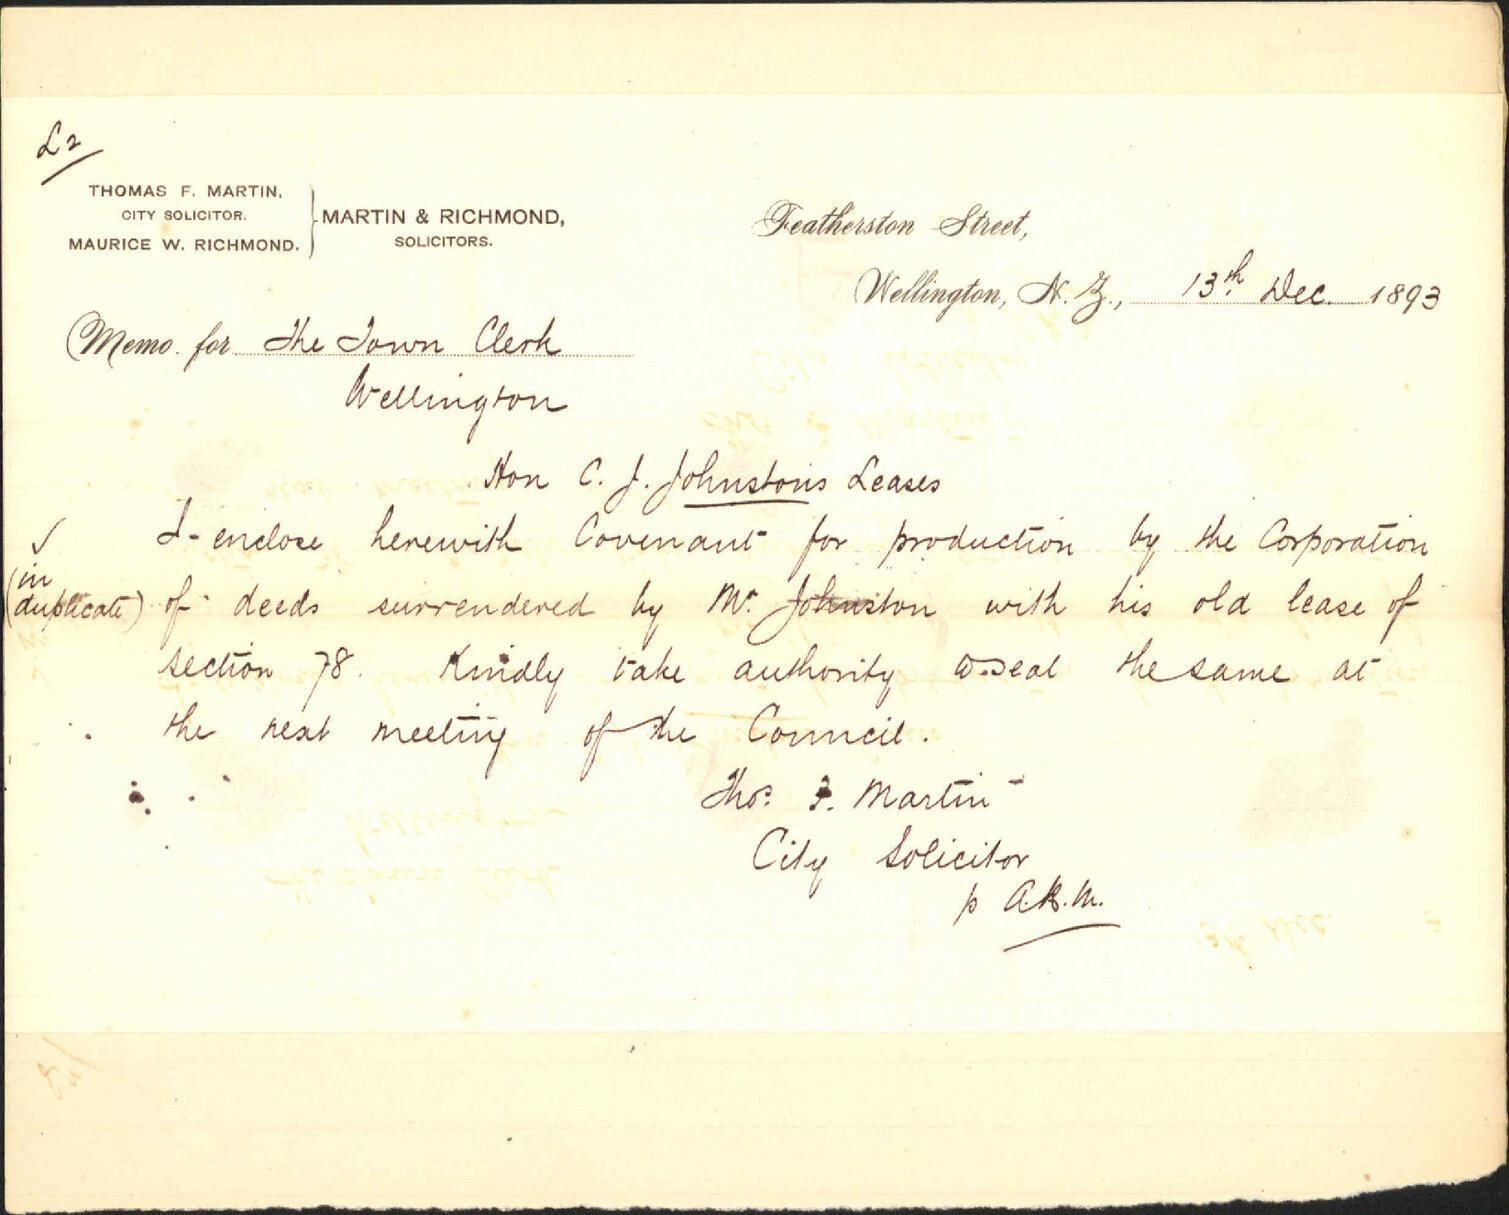 L2
THOMAS F. MARTIN,
CITY SOLICITOR.
MAURICE W. RICHMOND.
MARTIN & RICHMOND,
SOLICITORS.
Featherston Street,
Wellington, N. Z., 13th Dec. 1893
Memo. for The Town Clerk
Wellington
Hon C. J. Johnston's Leases
I enclose herewith Covenant for production by the Corporation
(in duplicate) of deeds surrendered by Mr Johnston with his old lease of
section 78. Kindly take authority to seal the same at
the next meeting of the Council.
Thos. F. Martin
City Solicitor
p A.R.M.